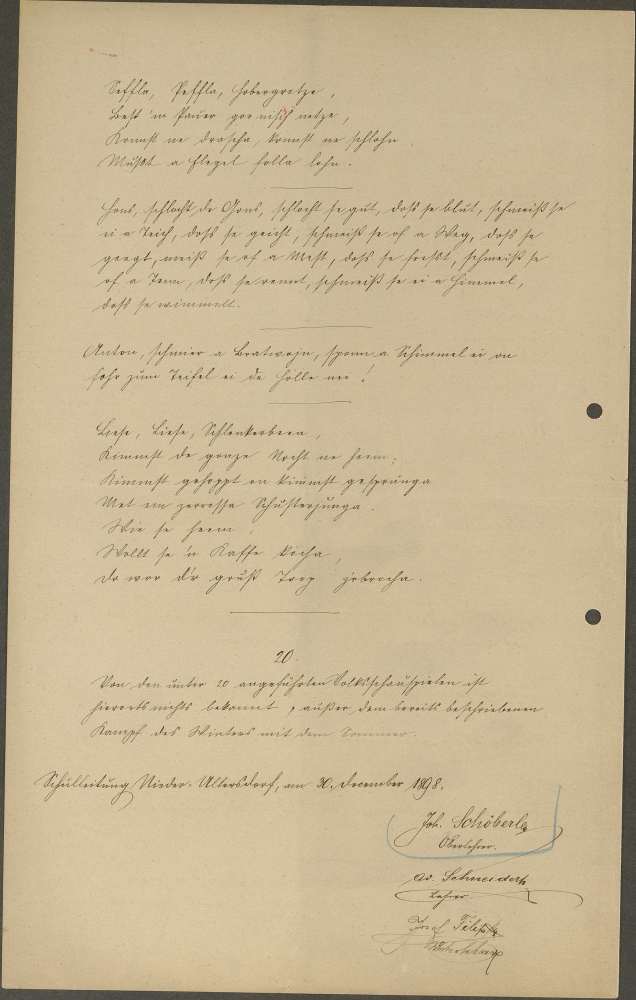 Seffla, Peffla, Hobergretze,
Best 'm Pauer goe nisch netze,
Konnst ne droscha, konnst ne schlohn
Mußt a Flegel folla lohn.
Hons, schlacht de Gons, schlacht se gut, doß se blut, schmeiß se
ei a Teich, doß se geicht, schmeiß se of a Weg, doß se
geegt, meiß se of a Mest, doß se freßt, schmeiß se
of a Tenn, doß se rennt, schmeiß se ei a Himmel,
doß se wimmelt.
Anton, schmier a Bratwojn, sponn a Schimmel ei on
fohr zum Teifel ei de Hölle nei!
Liese, Liese, Schlenkerbeen,
Kimmst de gonze Nocht ne heem.
Kimmst gehoppt on kimmst gesprunga
Met em zerressa Schusterjunga.
Wie se heem
Wollt se 'n Kaffe kocha,
Do wor d'r gruß Toop zobrocha.
20.
Von den unter 20 angeführten Volksschauspielen ist
hierorts nichts bekannt, außer dem bereits beschriebenen
Kampf des Winters mit dem Sommer.
Schulleitung Nieder-Ullersdorf, am 30. December 1898.
Joh. Schöberle
Oberlehrer.
Ad. Schneider
Lehrer
Josef